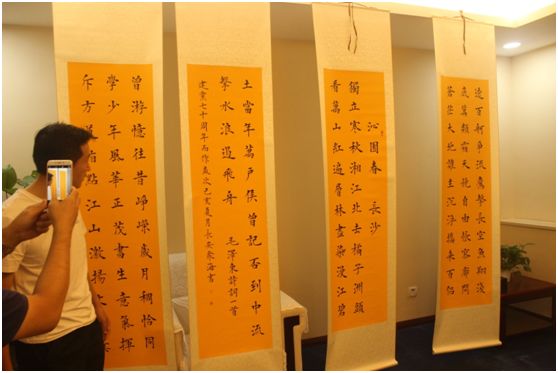 沁園春 長沙
獨立寒秋湘江北去橘子洲頭
看萬山紅遍層林盡染漫江碧
透百舸爭流鷹擊長空魚翔淺
底萬類霜天競自由悵寥廓問
蒼茫大地誰主沉浮攜來百侶
曾游憶往昔崢嶸歲月稠恰同
學少年風華正茂書生意氣揮
斥方遒指點江山激揚文
土當年萬户侯曾記否到中流
擊水浪遏飛舟 毛澤東詩詞一首
七十周年而作歲次己亥夏月長安海書